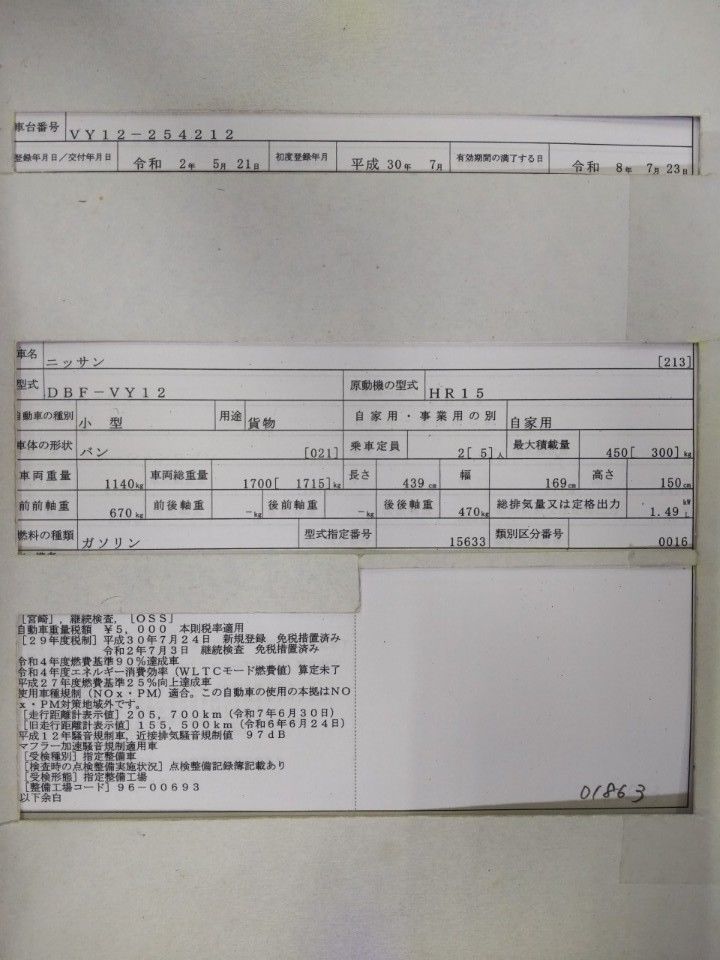 車台番号 VY12-254212
登録年月日/交付年月日 令和 2年 5月 21日 初度登録年月 平成 30年 7月 有効期間の満了する日 令和 8年 7月 23日
車名 ニッサン [213]
型式 DBF-VY12 原動機の型式 HR15
自動車の種別 小 型 用途 貨物 自家用・事業用の別 自家用
車体の形状 バン [021] 乗車定員 2[ 5]人 最大積載量 450[ 300]kg
車両重量 1140kg 車両総重量 1700[ 1715]kg 長さ 439cm 幅 169cm 高さ 150cm
前前軸重 670kg 前後軸重 -kg 後前軸重 -kg 後後軸重 470kg 総排気量又は定格出力 1.49 kW L
燃料の種類 ガソリン 型式指定番号 15633 類別区分番号 0016
[宮崎],継続検査,[OSS]
自動車重量税額 ¥5,000 本則税率適用
[29年度税制]平成30年7月24日 新規登録 免税措置済み
令和2年7月3日 継続検査 免税措置済み
令和4年度燃費基準90%達成車
令和4年度エネルギー消費効率(WLTCモード燃費値)算定未了
平成27年度燃費基準25%向上達成車
使用車種規制(NOx・PM)適合。この自動車の使用の本拠はNO
x・PM対策地域外です。
[走行距離計表示値]205,700km(令和7年6月30日)
[旧走行距離計表示値]155,500km(令和6年6月24日)
平成12年騒音規制車,近接排気騒音規制値 97dB
マフラー加速騒音規制適用車
[受検種別]指定整備車
[検査時の点検整備実施状況]点検整備記録簿記載あり
[受検形態]指定整備工場
[整備工場コード]96-00693
以下余白
01863